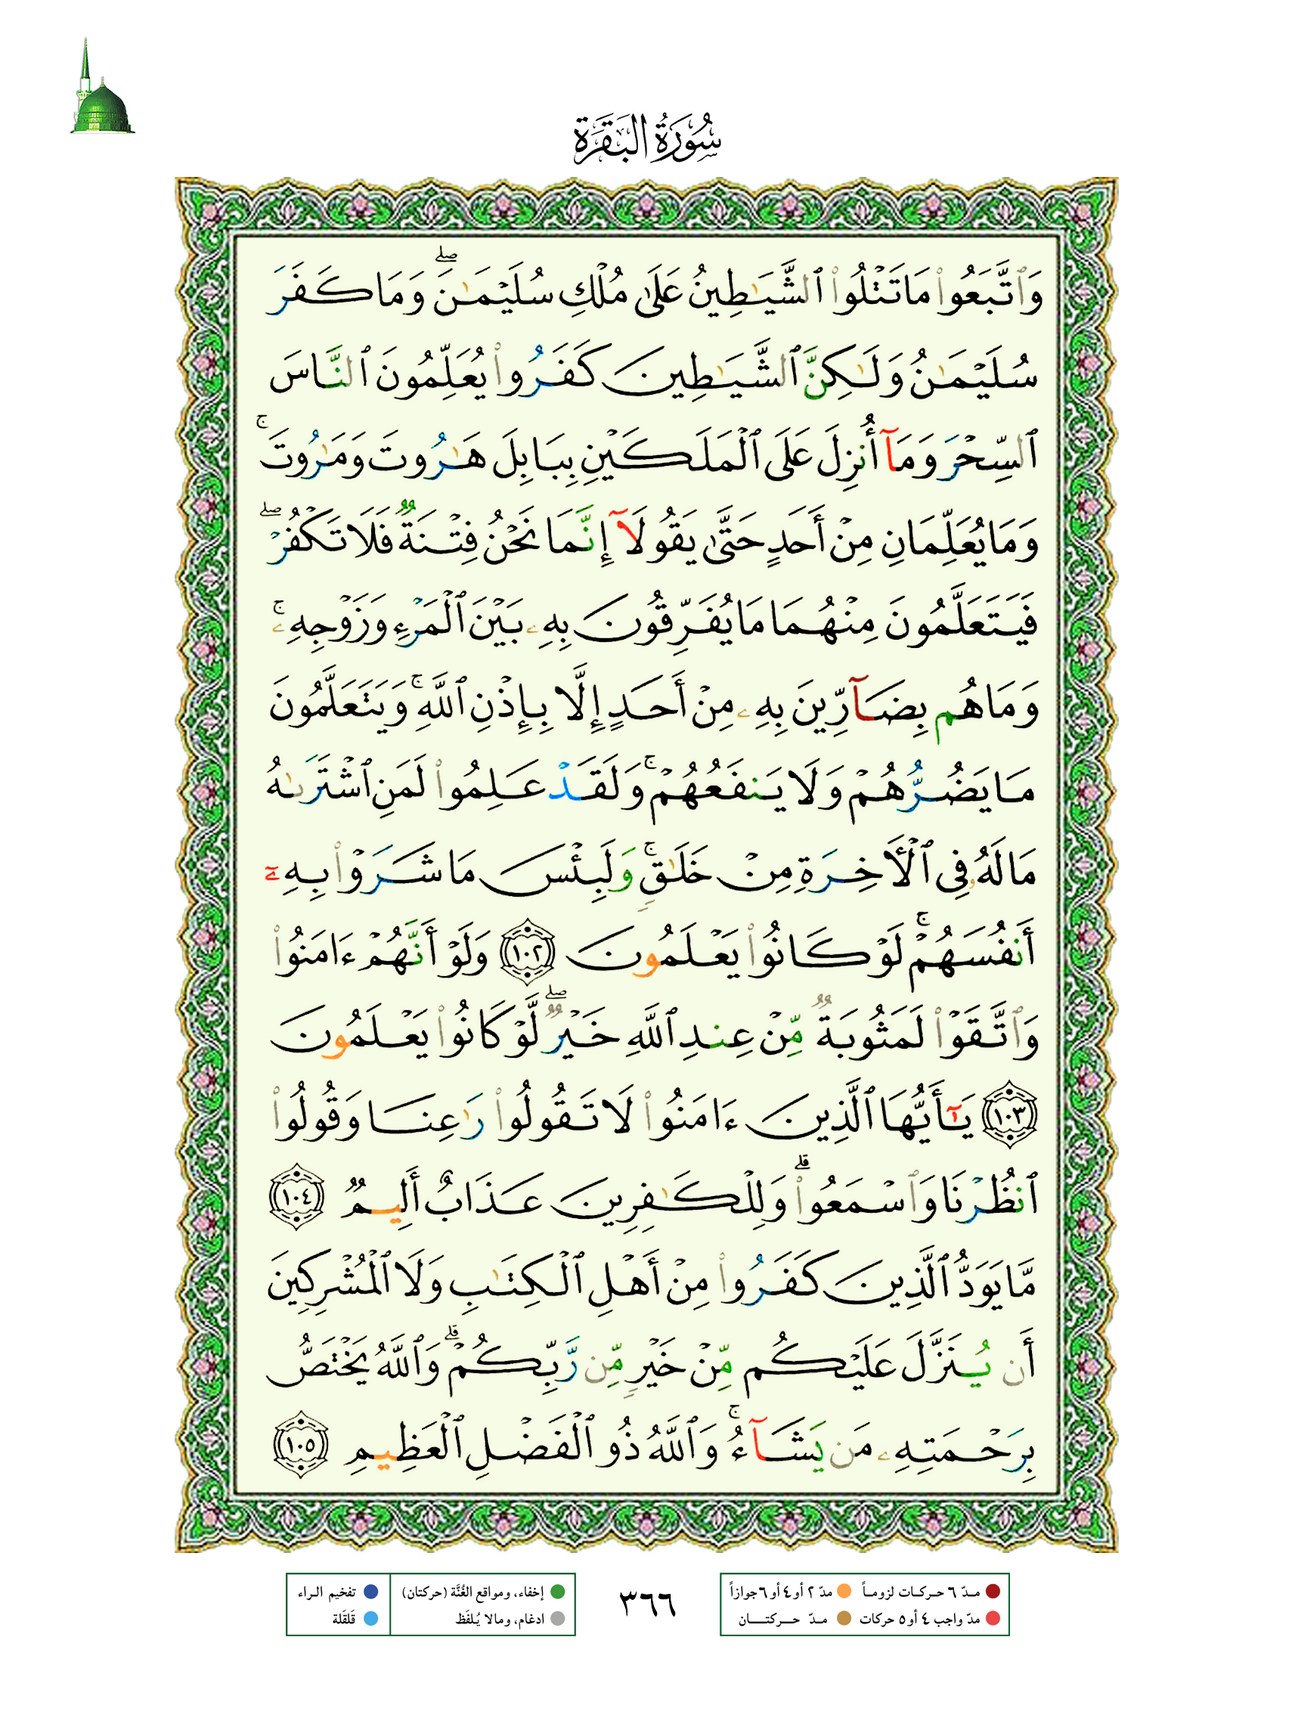 سُورَةُ البَقَرَة
وَٱتَّبَعُوا۟ مَا تَتْلُوا۟ ٱلشَّيَـٰطِينُ عَلَىٰ مُلْكِ سُلَيْمَـٰنَ ۖ وَمَا كَفَرَ
سُلَيْمَـٰنُ وَلَـٰكِنَّ ٱلشَّيَـٰطِينَ كَفَرُوا۟ يُعَلِّمُونَ ٱلنَّاسَ
ٱلسِّحْرَ وَمَآ أُنزِلَ عَلَى ٱلْمَلَكَيْنِ بِبَابِلَ هَـٰرُوتَ وَمَـٰرُوتَ ۚ
وَمَا يُعَلِّمَانِ مِنْ أَحَدٍ حَتَّىٰ يَقُولَآ إِنَّمَا نَحْنُ فِتْنَةٌ فَلَا تَكْفُرْ ۖ
فَيَتَعَلَّمُونَ مِنْهُمَا مَا يُفَرِّقُونَ بِهِۦ بَيْنَ ٱلْمَرْءِ وَزَوْجِهِۦ ۚ
وَمَا هُم بِضَآرِّينَ بِهِۦ مِنْ أَحَدٍ إِلَّا بِإِذْنِ ٱللَّهِ ۚ وَيَتَعَلَّمُونَ
مَا يَضُرُّهُمْ وَلَا يَنفَعُهُمْ ۚ وَلَقَدْ عَلِمُوا۟ لَمَنِ ٱشْتَرَىٰهُ
مَا لَهُۥ فِى ٱلْـَٔاخِرَةِ مِنْ خَلَـٰقٍ ۚ وَلَبِئْسَ مَا شَرَوْا۟ بِهِۦٓ
أَنفُسَهُمْ ۚ لَوْ كَانُوا۟ يَعْلَمُونَ ١٠٢ وَلَوْ أَنَّهُمْ ءَامَنُوا۟
وَٱتَّقَوْا۟ لَمَثُوبَةٌ مِّنْ عِندِ ٱللَّهِ خَيْرٌ ۖ لَّوْ كَانُوا۟ يَعْلَمُونَ
١٠٣ يَـٰٓأَيُّهَا ٱلَّذِينَ ءَامَنُوا۟ لَا تَقُولُوا۟ رَٰعِنَا وَقُولُوا۟
ٱنظُرْنَا وَٱسْمَعُوا۟ ۗ وَلِلْكَـٰفِرِينَ عَذَابٌ أَلِيمٌ ١٠٤
مَّا يَوَدُّ ٱلَّذِينَ كَفَرُوا۟ مِنْ أَهْلِ ٱلْكِتَـٰبِ وَلَا ٱلْمُشْرِكِينَ
أَن يُنَزَّلَ عَلَيْكُم مِّنْ خَيْرٍ مِّن رَّبِّكُمْ ۗ وَٱللَّهُ يَخْتَصُّ
بِرَحْمَتِهِۦ مَن يَشَآءُ ۚ وَٱللَّهُ ذُو ٱلْفَضْلِ ٱلْعَظِيمِ ١٠٥
مـدّ ٦ حـركـات لزومـاً
مدّ ٢ أو ٤ أو ٦ جوازاً
مدّ واجب ٤ أو ٥ حركات
مـدّ حـــركتـــــان
٣٦٦
إخفاء، ومواقع الغُنَّة (حركتان)
ادغام، ومالا يُـلفَظ
تفخيم الـراء
قَلقَلة